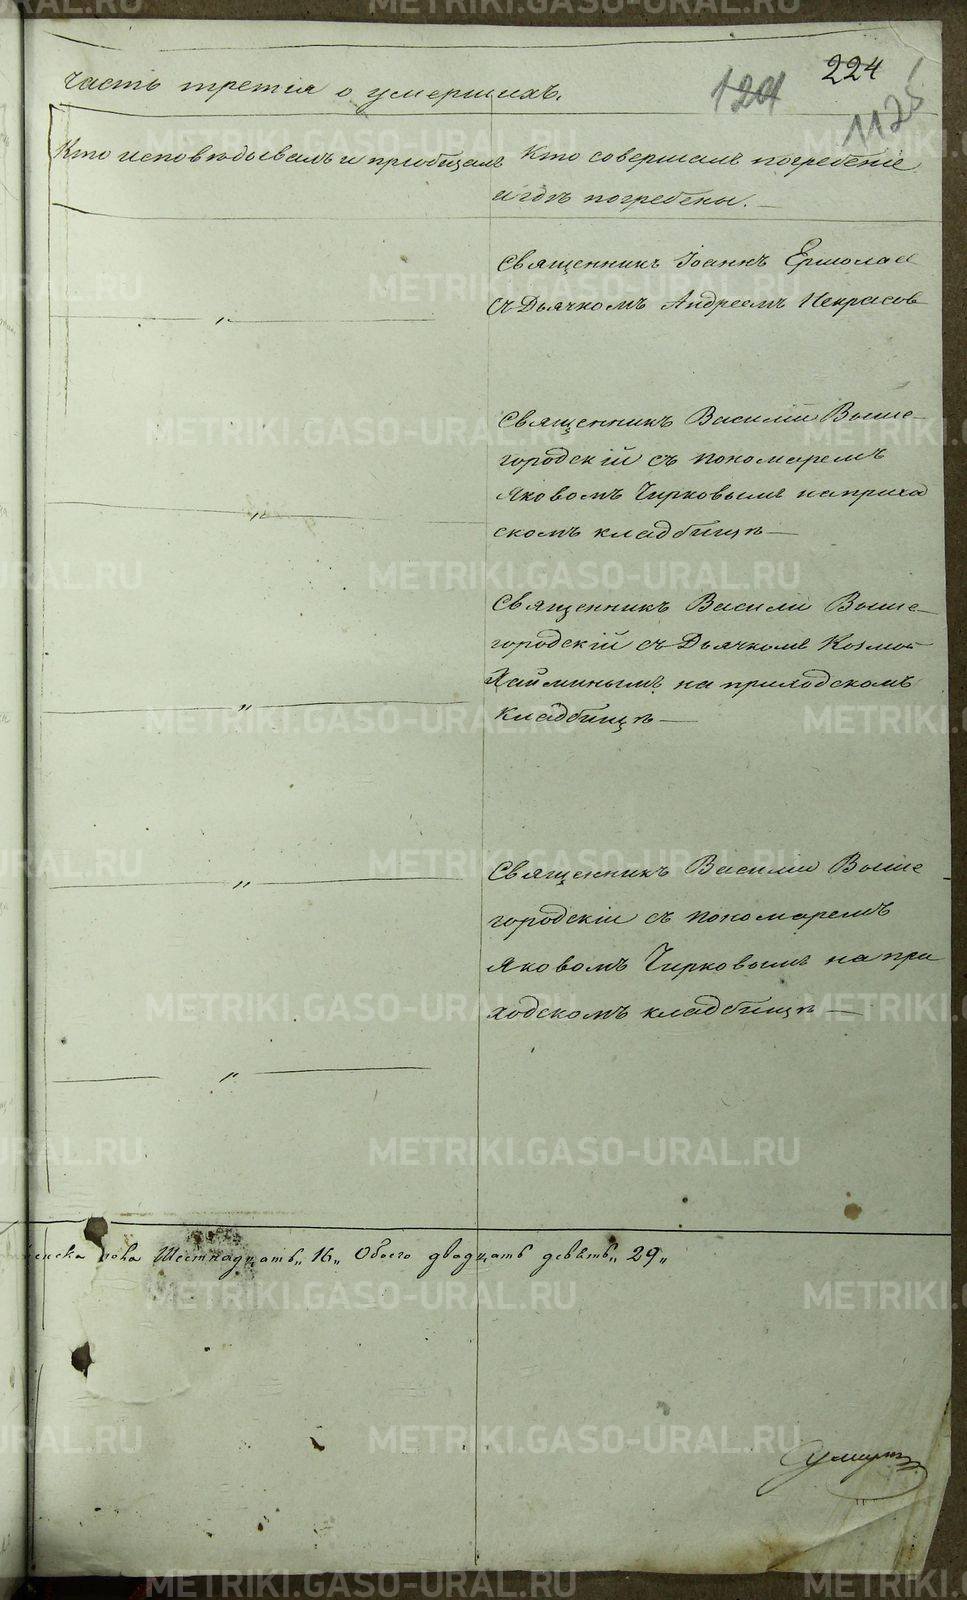 224
124
1125
Часть третiя о умершихъ.
Кто исповѣдывалъ и прiобщалъ
Кто совершалъ погребенiе
и гдѣ погребены.
Священникъ Iоаннъ Ермолае
Съ Дьячкомъ Андреемъ Некрасов
Священникъ Василiй Выше-
городскiй съ пономаремъ
Яковомъ Чирковымъ на приход
скомъ кладбищѣ
Священникъ Василiй Выше-
городскiй съ Дьячкомъ Козмою
на приходскомъ
кладбищѣ
Священникъ Василiй Выше
городскiй съ пономаремъ
Яковомъ Чирковымъ на при
ходскомъ кладбищѣ
женска пола Шестнадцать „16„ Обоего двадцать девять „29„
METRIKI.GASO-URAL.RU